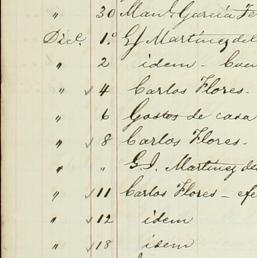 " 30 Man^l García Fe
Dic. 1.º G. J. Martinez del
" 2 idem. - Cuen
" 4 Carlos Flores -
" 6 Gastos de casa
" 8 Carlos Flores -
" " G. J. Martinez de
" 11 Carlos Flores - efe
" 12 idem
" 13 idem